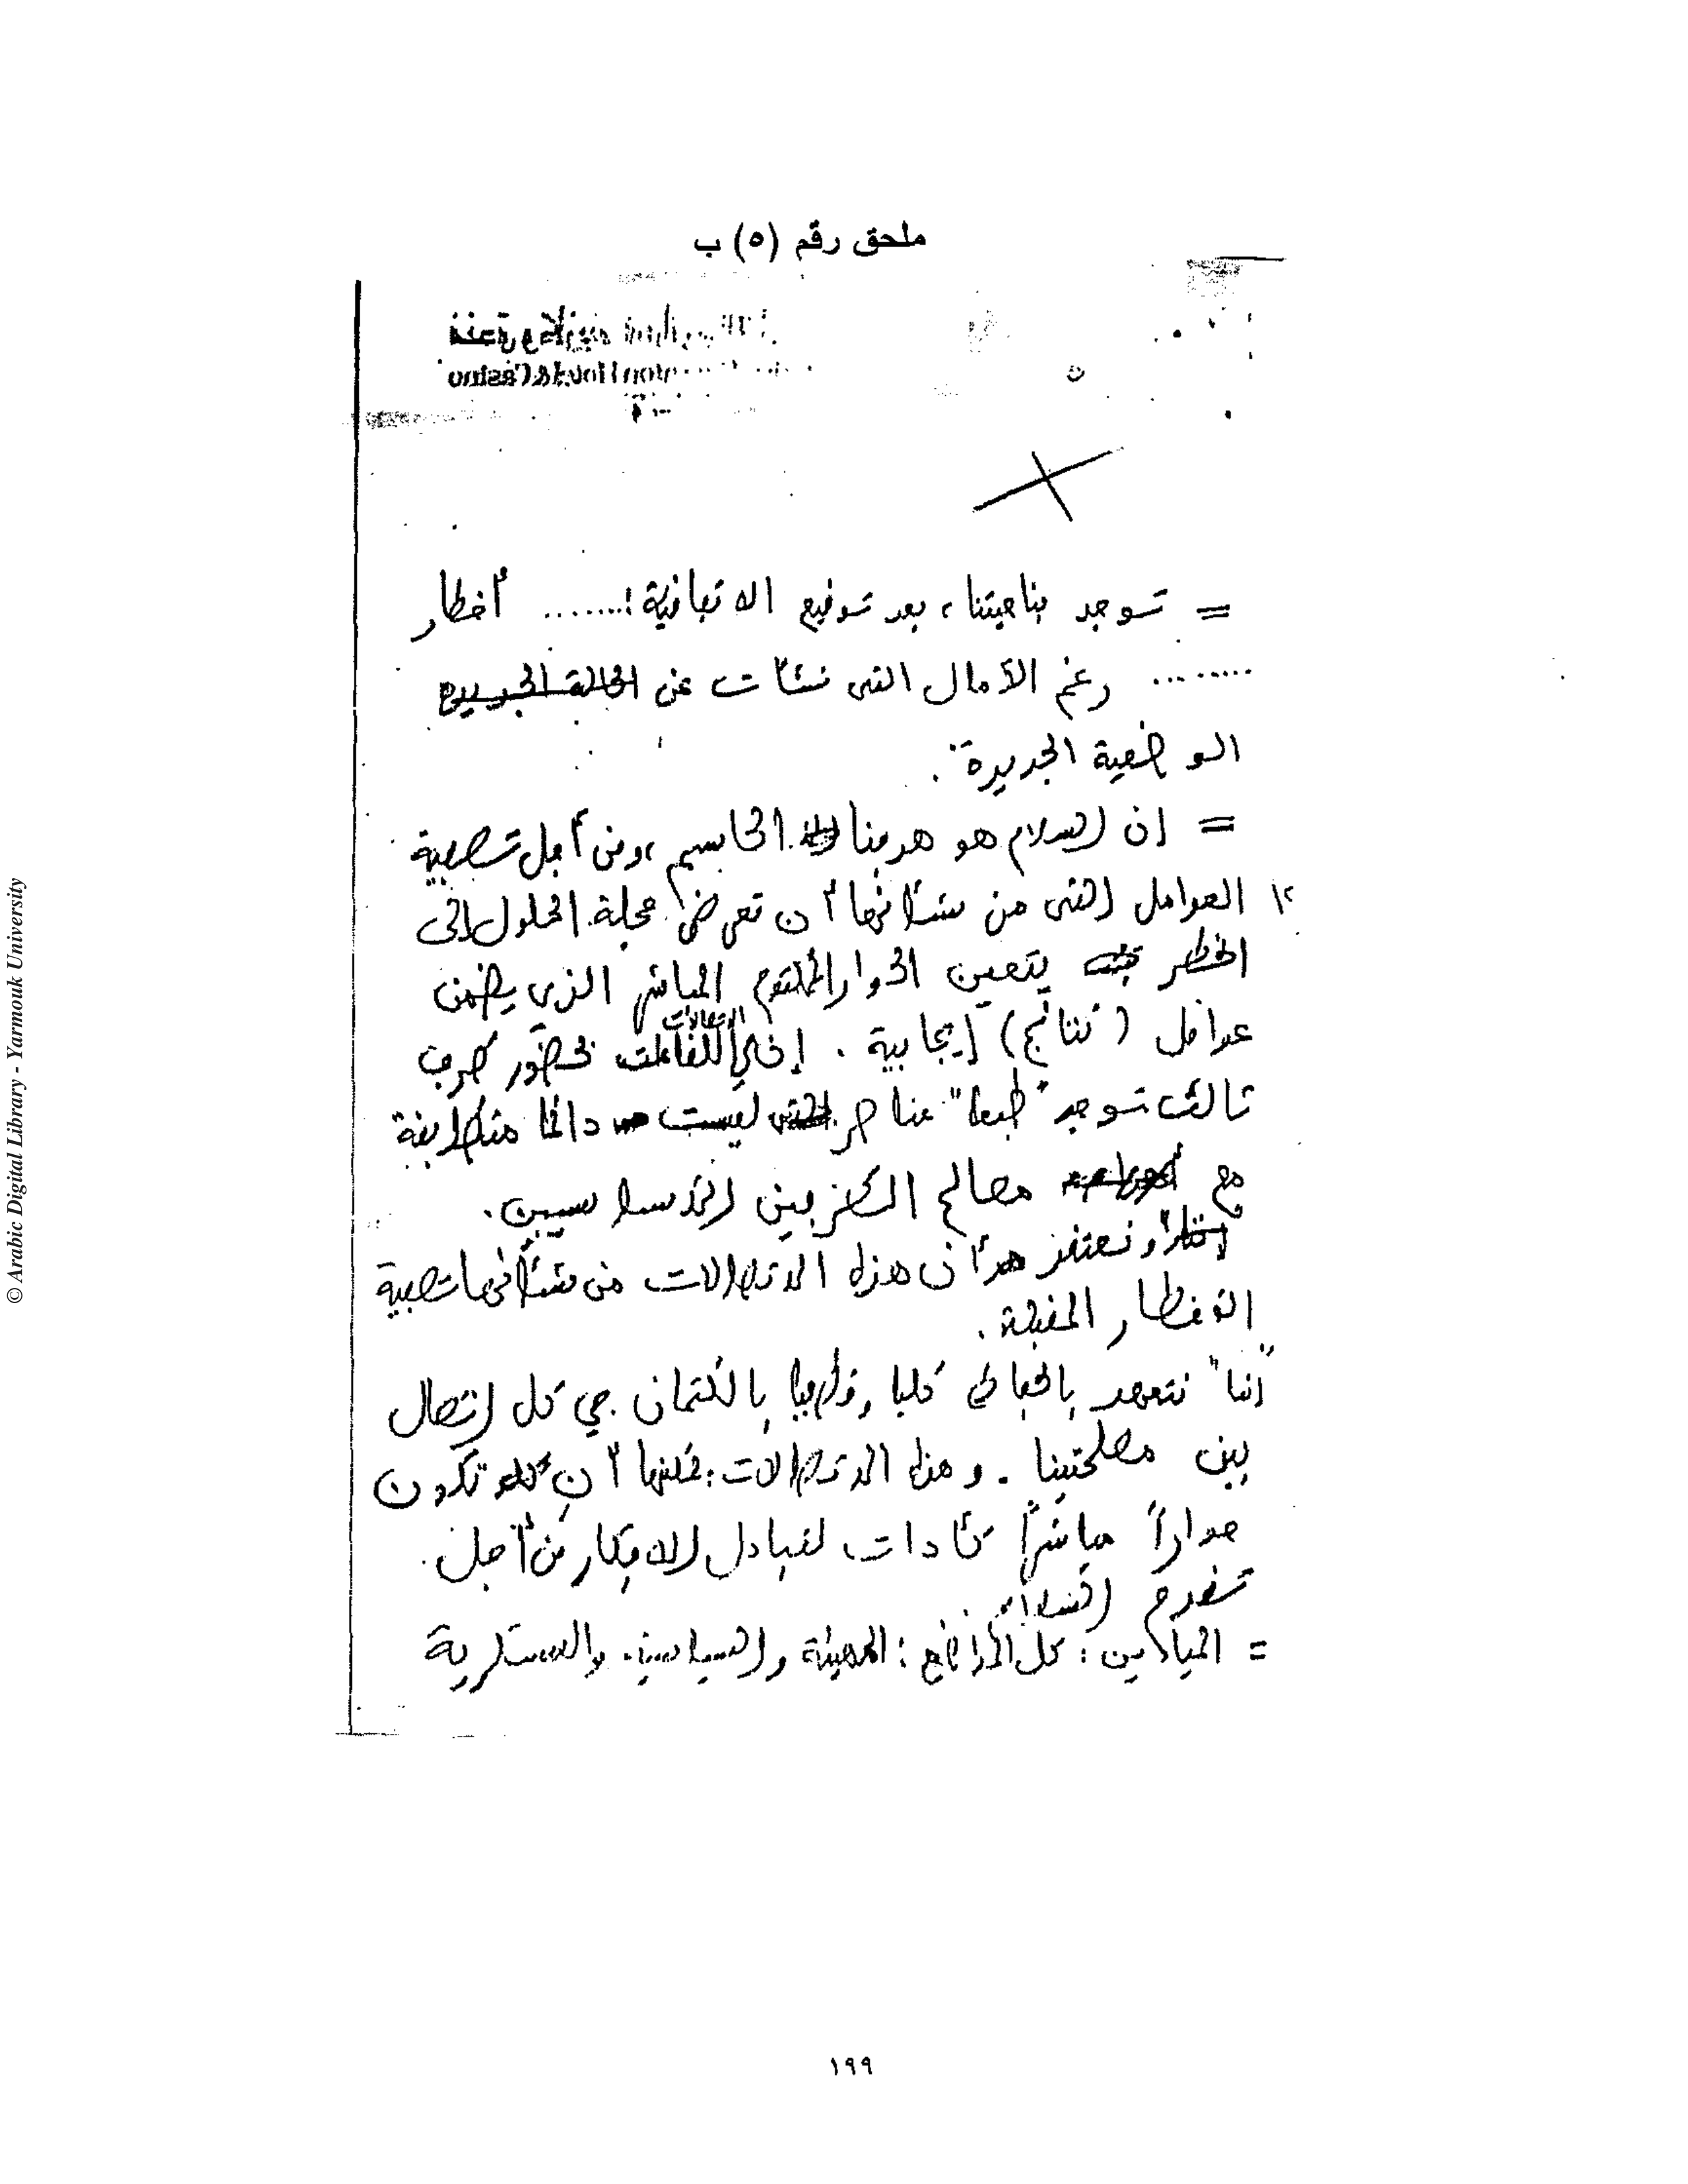 ملحق رقم (٥) ب
= توجد بناحيتنا، بعد توقيع الاتفاقية!........ أخطار
........ رغم الآمال التى نشأت عن الحالة الجديدة
الوضعية الجديدة.
= ان السلام هو هدفنا الحاسم، ومن أجل تصفية
العوامل التى من شأنها أن تعرض عجلة الحلول إلى
الخطر يتعين الحوار المباشر الذى يضمن
عوامل (نتائج) إيجابية. الاتصالات بحضور طرف
ثالث توجد "طبعا" عناصر ليست دائما متطابقة
مع مصالح الطرفين الأساسيين.
ونعتقد أن هذه الاتصالات من شأنها تصفية
الأخطار المقبلة.
"اننا" نتعهد بالحفاظ كليا ونهائيا بالكتمان كل اتصال
بين مصلحتينا. وهذه الاتصالات يمكنها أن تكون
حواراً مباشراً كأداة لتبادل الافكار من أجل
تقدم السلام
= الميادين: كل المواضيع: والسياسية والعسكرية
١٩٩
© Arabic Digital Library - Yarmouk University